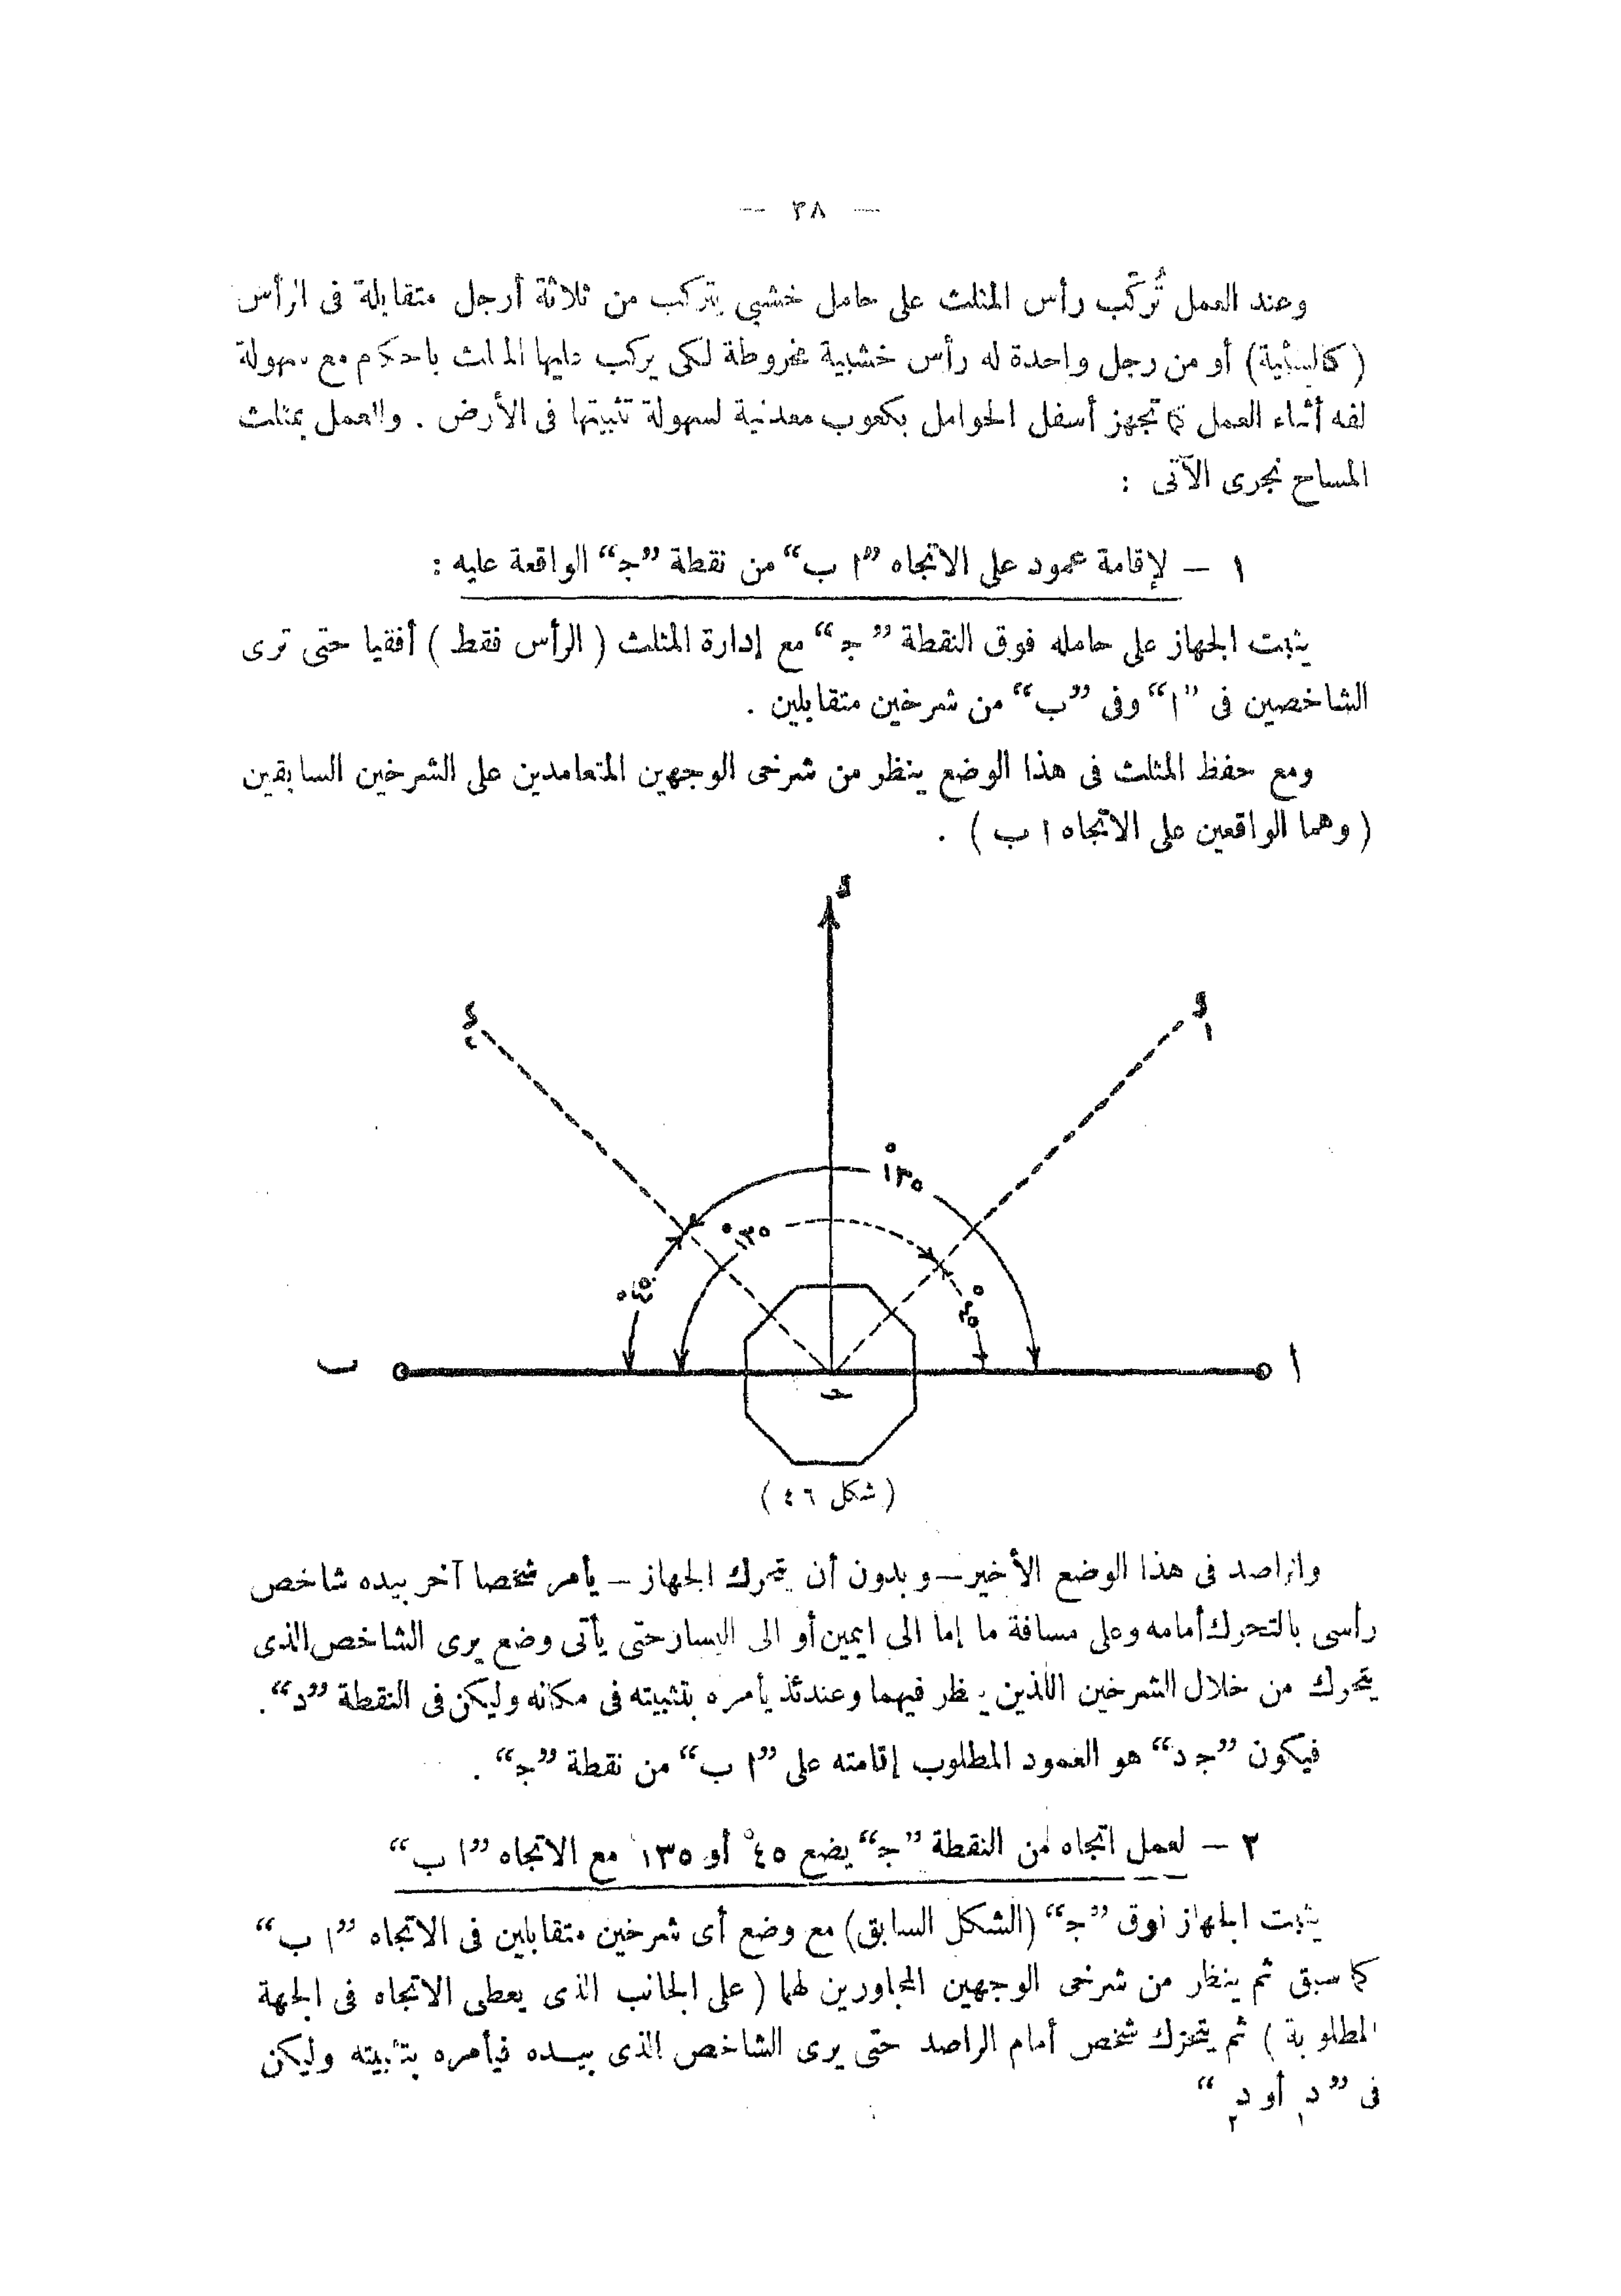 — ٣٨ —
وعند العمل تُركّب رأس المثلث على حامل خشبي يتركب من ثلاثة أرجل متقابلة فى الرأس
( كالسيبية) أو من رجل واحدة له رأس خشبية مخروطة لكى يركب عليها المثلث باحكام مع سهولة
لفه أثناء العمل كما تجهز أسفل الحوامل بكعوب معدنية لسهولة تثبيتها فى الأرض . والعمل بمثلث
المساح نجرى الآتى :
١ – لإقامة عمود على الاتجاه ”ا ب“ من نقطة ”جـ“ الواقعة عليه :
يثبت الجهاز على حامله فوق النقطة ”جـ“ مع إدارة المثلث ( الرأس فقط ) أفقيا حتى ترى
الشاخصين فى ”ا“ وفى ”ب“ من شرخين متقابلين .
ومع حفظ المثلث فى هذا الوضع ينظر من شرخى الوجهين المتعامدين على الشرخين السابقين
( وهما الواقعين على الاتجاه ا ب ) .
د
د٢
د١
١٣٥°
١٣٥°
٤٥°
٤٥°
ب
ا
جـ
( شكل ٤٦ )
والراصد فى هذا الوضع الأخير – وبدون أن يتحرك الجهاز – يأمر شخصا آخر بيده شاخص
رأسى بالتحرك أمامه وعلى مسافة ما إما الى اليمين أو الى اليسار حتى يأتى وضع يرى الشاخص الذى
يتحرك من خلال الشرخين اللذين ينظر فيهما وعندئذ يأمره بتثبيته فى مكانه وليكن فى النقطة ”د“ .
فيكون ”جـ د“ هو العمود المطلوب إقامته على ”ا ب“ من نقطة ”جـ“ .
٢ – لعمل اتجاه من النقطة ”جـ“ يضع ٤٥° أو ١٣٥ مع الاتجاه ”ا ب“
يثبت الجهاز فوق ”جـ“ (الشكل السابق) مع وضع أى شرخين متقابلين فى الاتجاه ”ا ب“
كما سبق ثم ينظر من شرخى الوجهين المجاورين لهما ( على الجانب الذى يعطى الاتجاه فى الجهة
المطلوبة ) ثم يتحرك شخص أمام الراصد حتى يرى الشاخص الذى بيده فيأمره بتثبيته وليكن
فى ”د١ أو د٢“